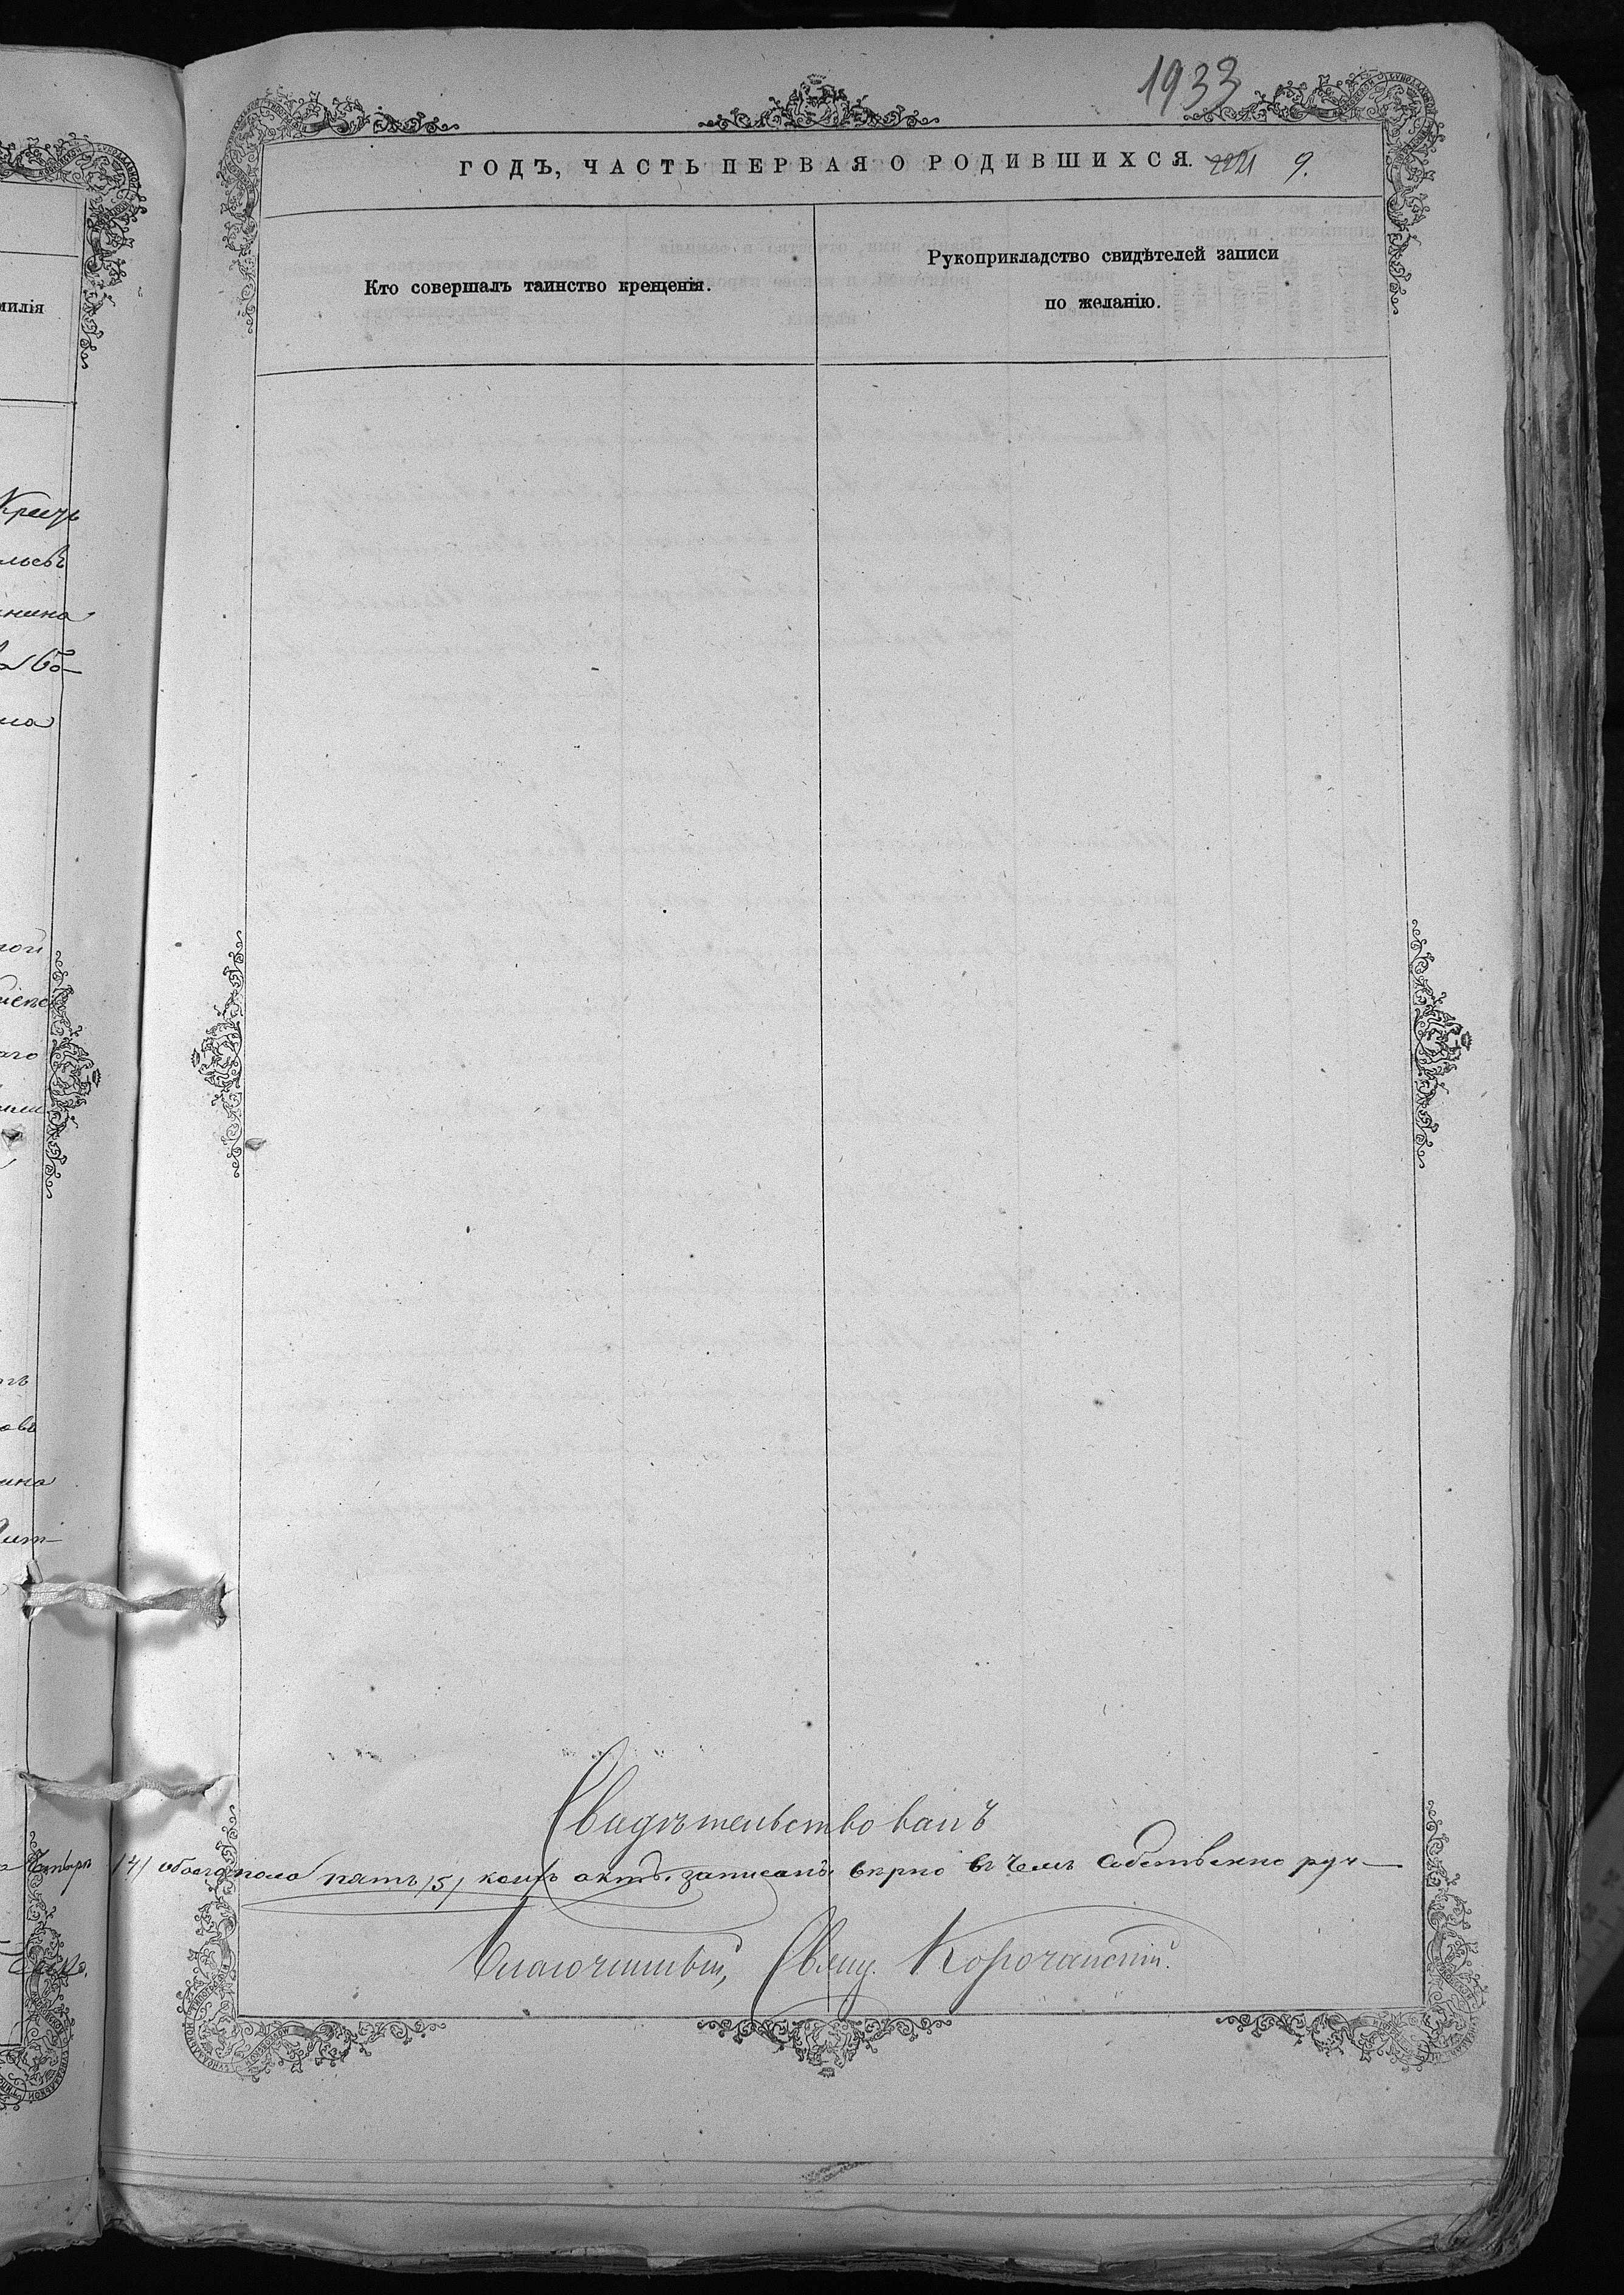 1933
ГОДЪ, ЧАСТЬ ПЕРВАЯ О РОДИВШИХСЯ. 9.
милія
Кто совершалъ таинство крещенія.
Рукоприкладство свидѣтелей записи
по желанію.
нина
ной
аго
Свидѣтельствовалъ
Четыре /4/ обоего пола пять /5/ коихъ актъ записанъ вѣрно въ чемъ собственно руч-
Благочинный, Свящ. Корочанскій.